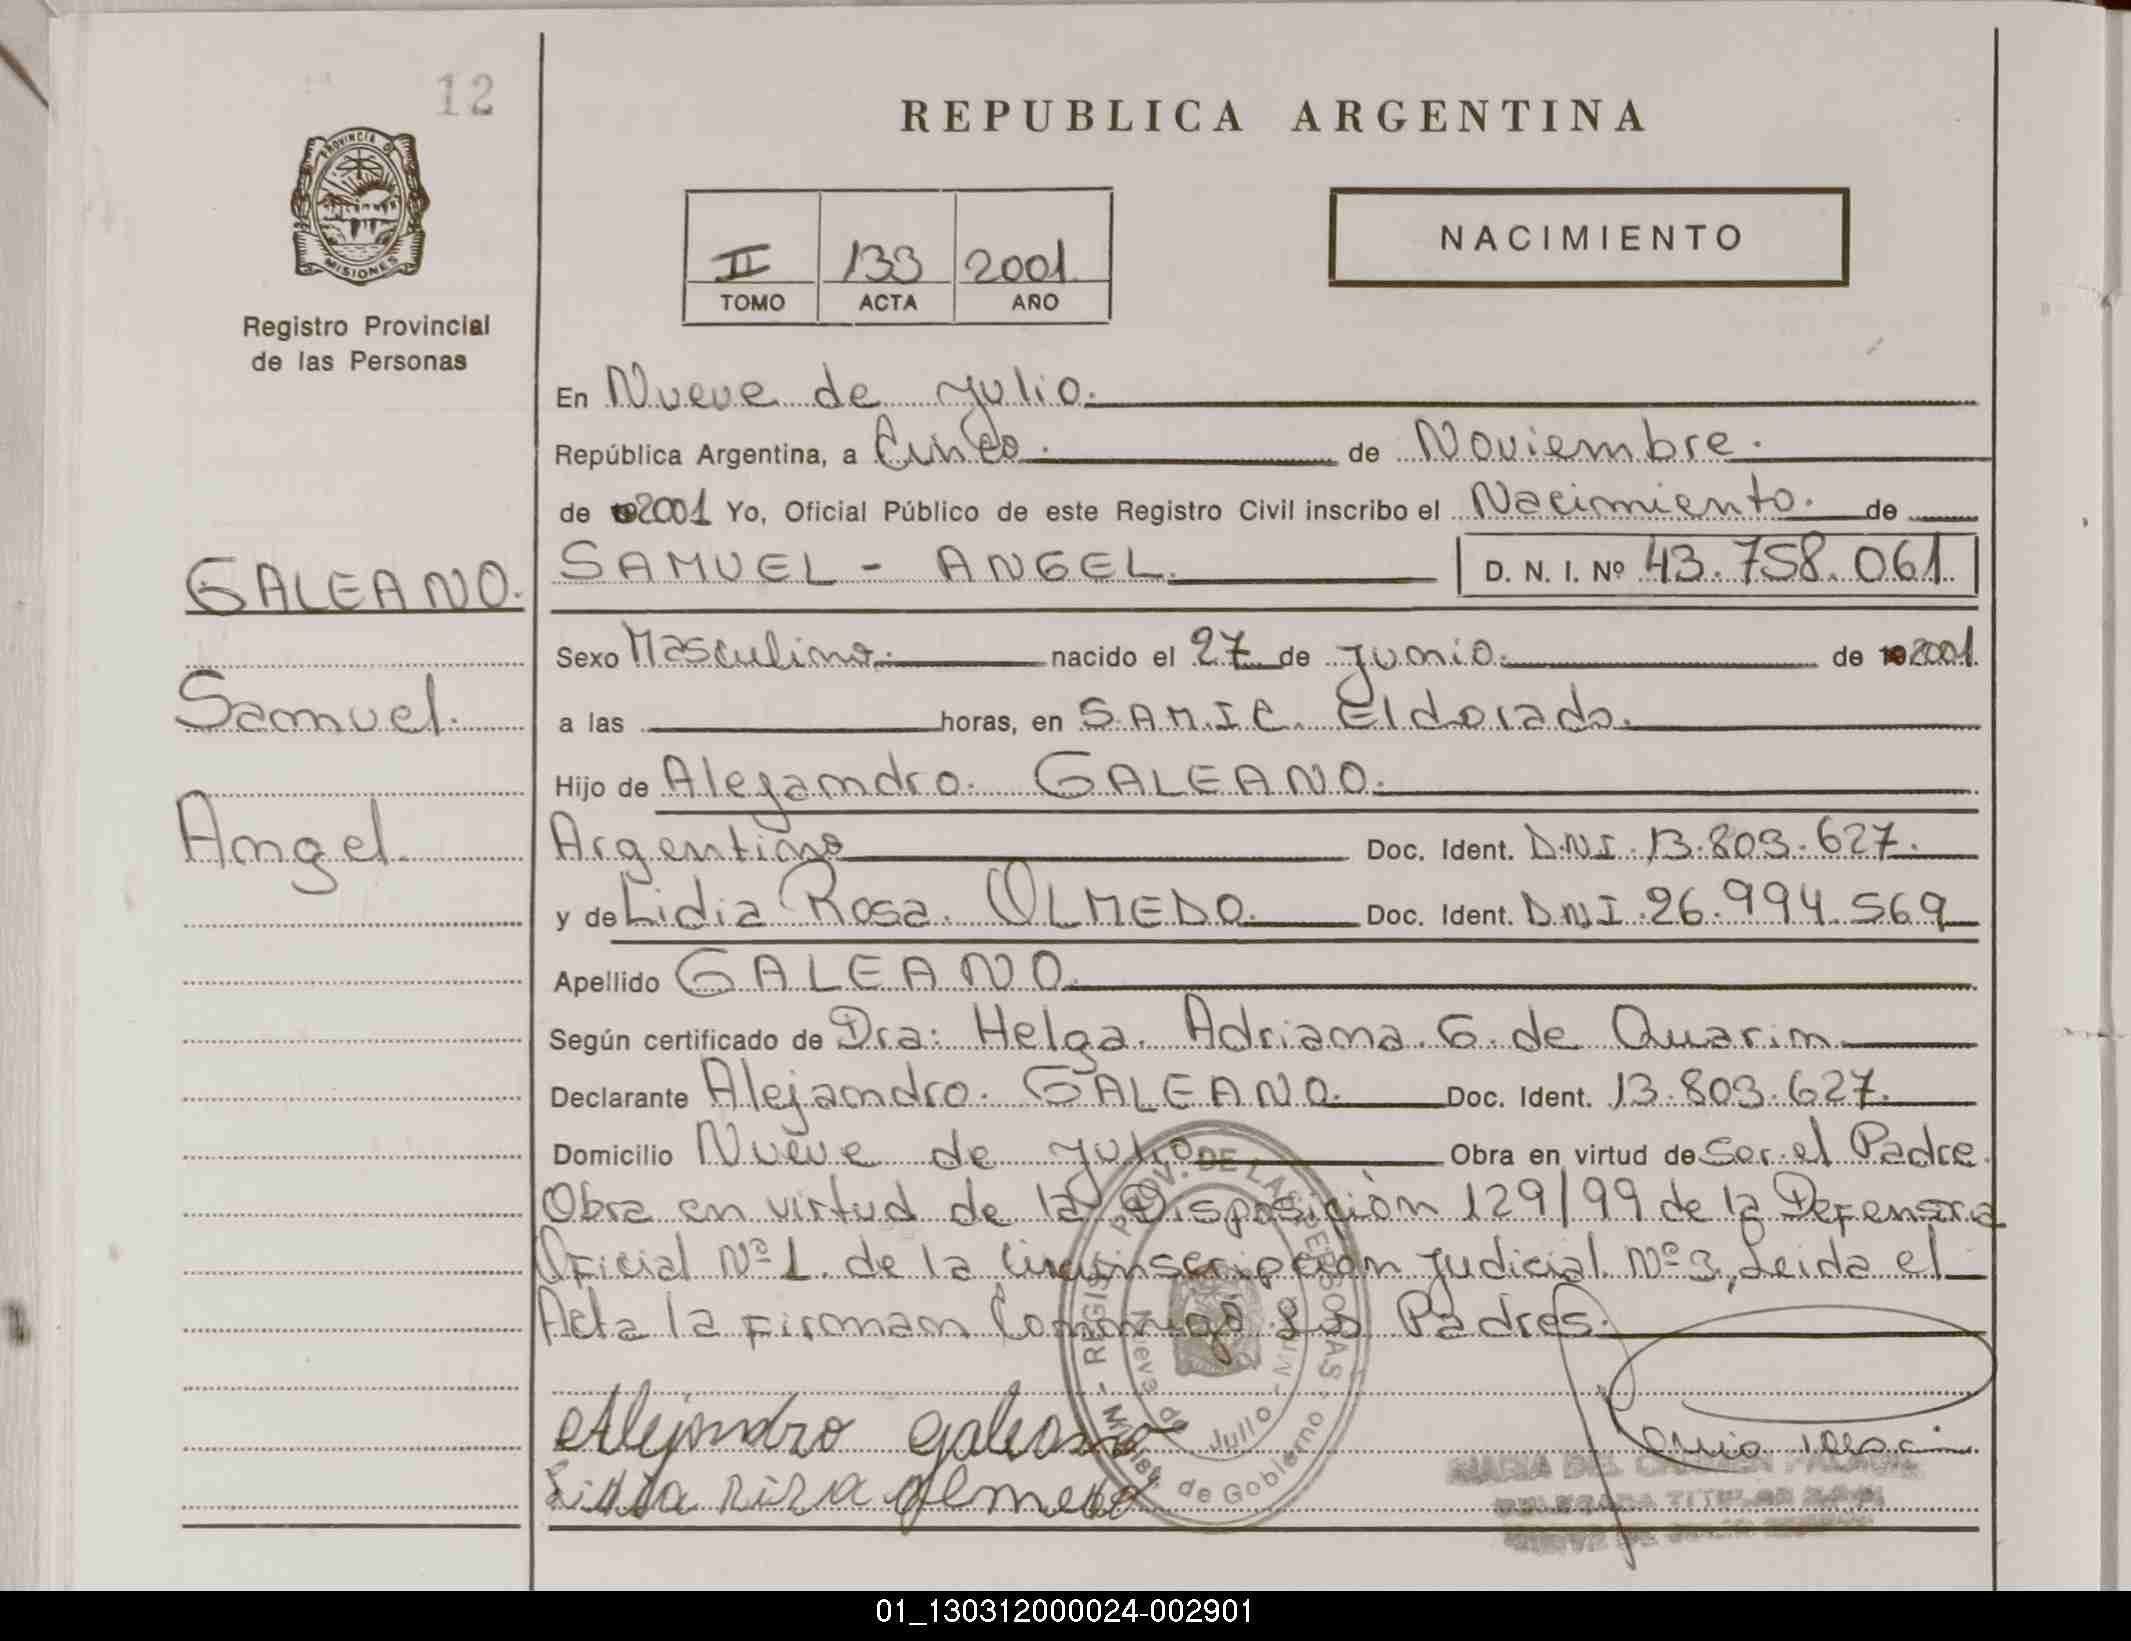 12
PROVINCIA D
MISIONES
Registro Provincial
de las Personas
REPUBLICA ARGENTINA
NACIMIENTO
II 133 2001
TOMO ACTA AÑO
En Nueve de julio.
República Argentina, a Cinco. de Noviembre.
de 2001 Yo, Oficial Público de este Registro Civil inscribo el Nacimiento. de
GALEANO.
Samuel.
Angel.
SAMUEL - ANGEL. D. N. I. Nº 43.758.061
Sexo Masculino. nacido el 27 de junio. de 2001.
a las horas, en S.A.M.I.C. Eldorado.
Hijo de Alejandro. GALEANO.
Argentino Doc. Ident. D.N.I. 13.803.627.
y de Lidia Rosa. OLMEDO. Doc. Ident. D.N.I. 26.994.569
Apellido GALEANO.
Según certificado de Dra: Helga. Adriana. G. de Quarin
Declarante Alejandro. GALEANO. Doc. Ident. 13.803.627.
Domicilio Nueve de julio. Obra en virtud de Ser el Padre.
Obra en virtud de la Disposición 129/99 de la Defensora
Oficial Nº 1. de la Circunscripción judicial Nº 3, Leida el
Acta la firman Conmigo sus Padres.
Alejandro galeano
Lidia rosa olmedo
REGIST. PROV. DE LAS PERSONAS
Nueve de Julio - Mnes
Minist. de Gobierno
MARIA DEL CARMEN
DELEGADA TITULAR
NUEVE DE JULIO
01_130312000024-002901